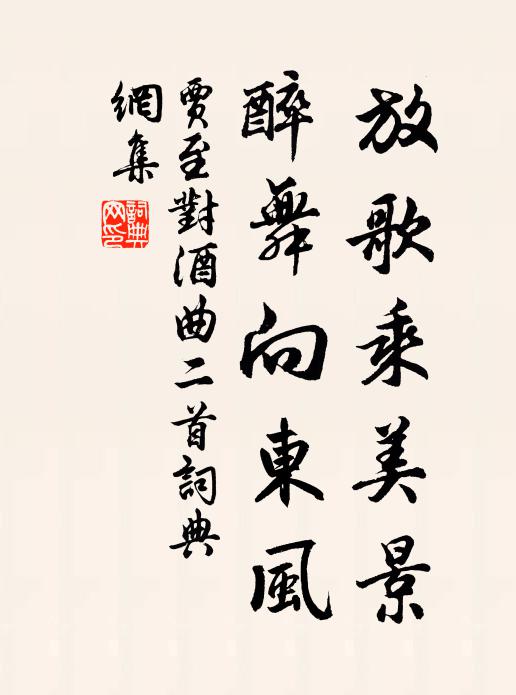 放歌乘美景
醉舞向東風
賈至對酒曲二首詞典
網集
詞典
网印